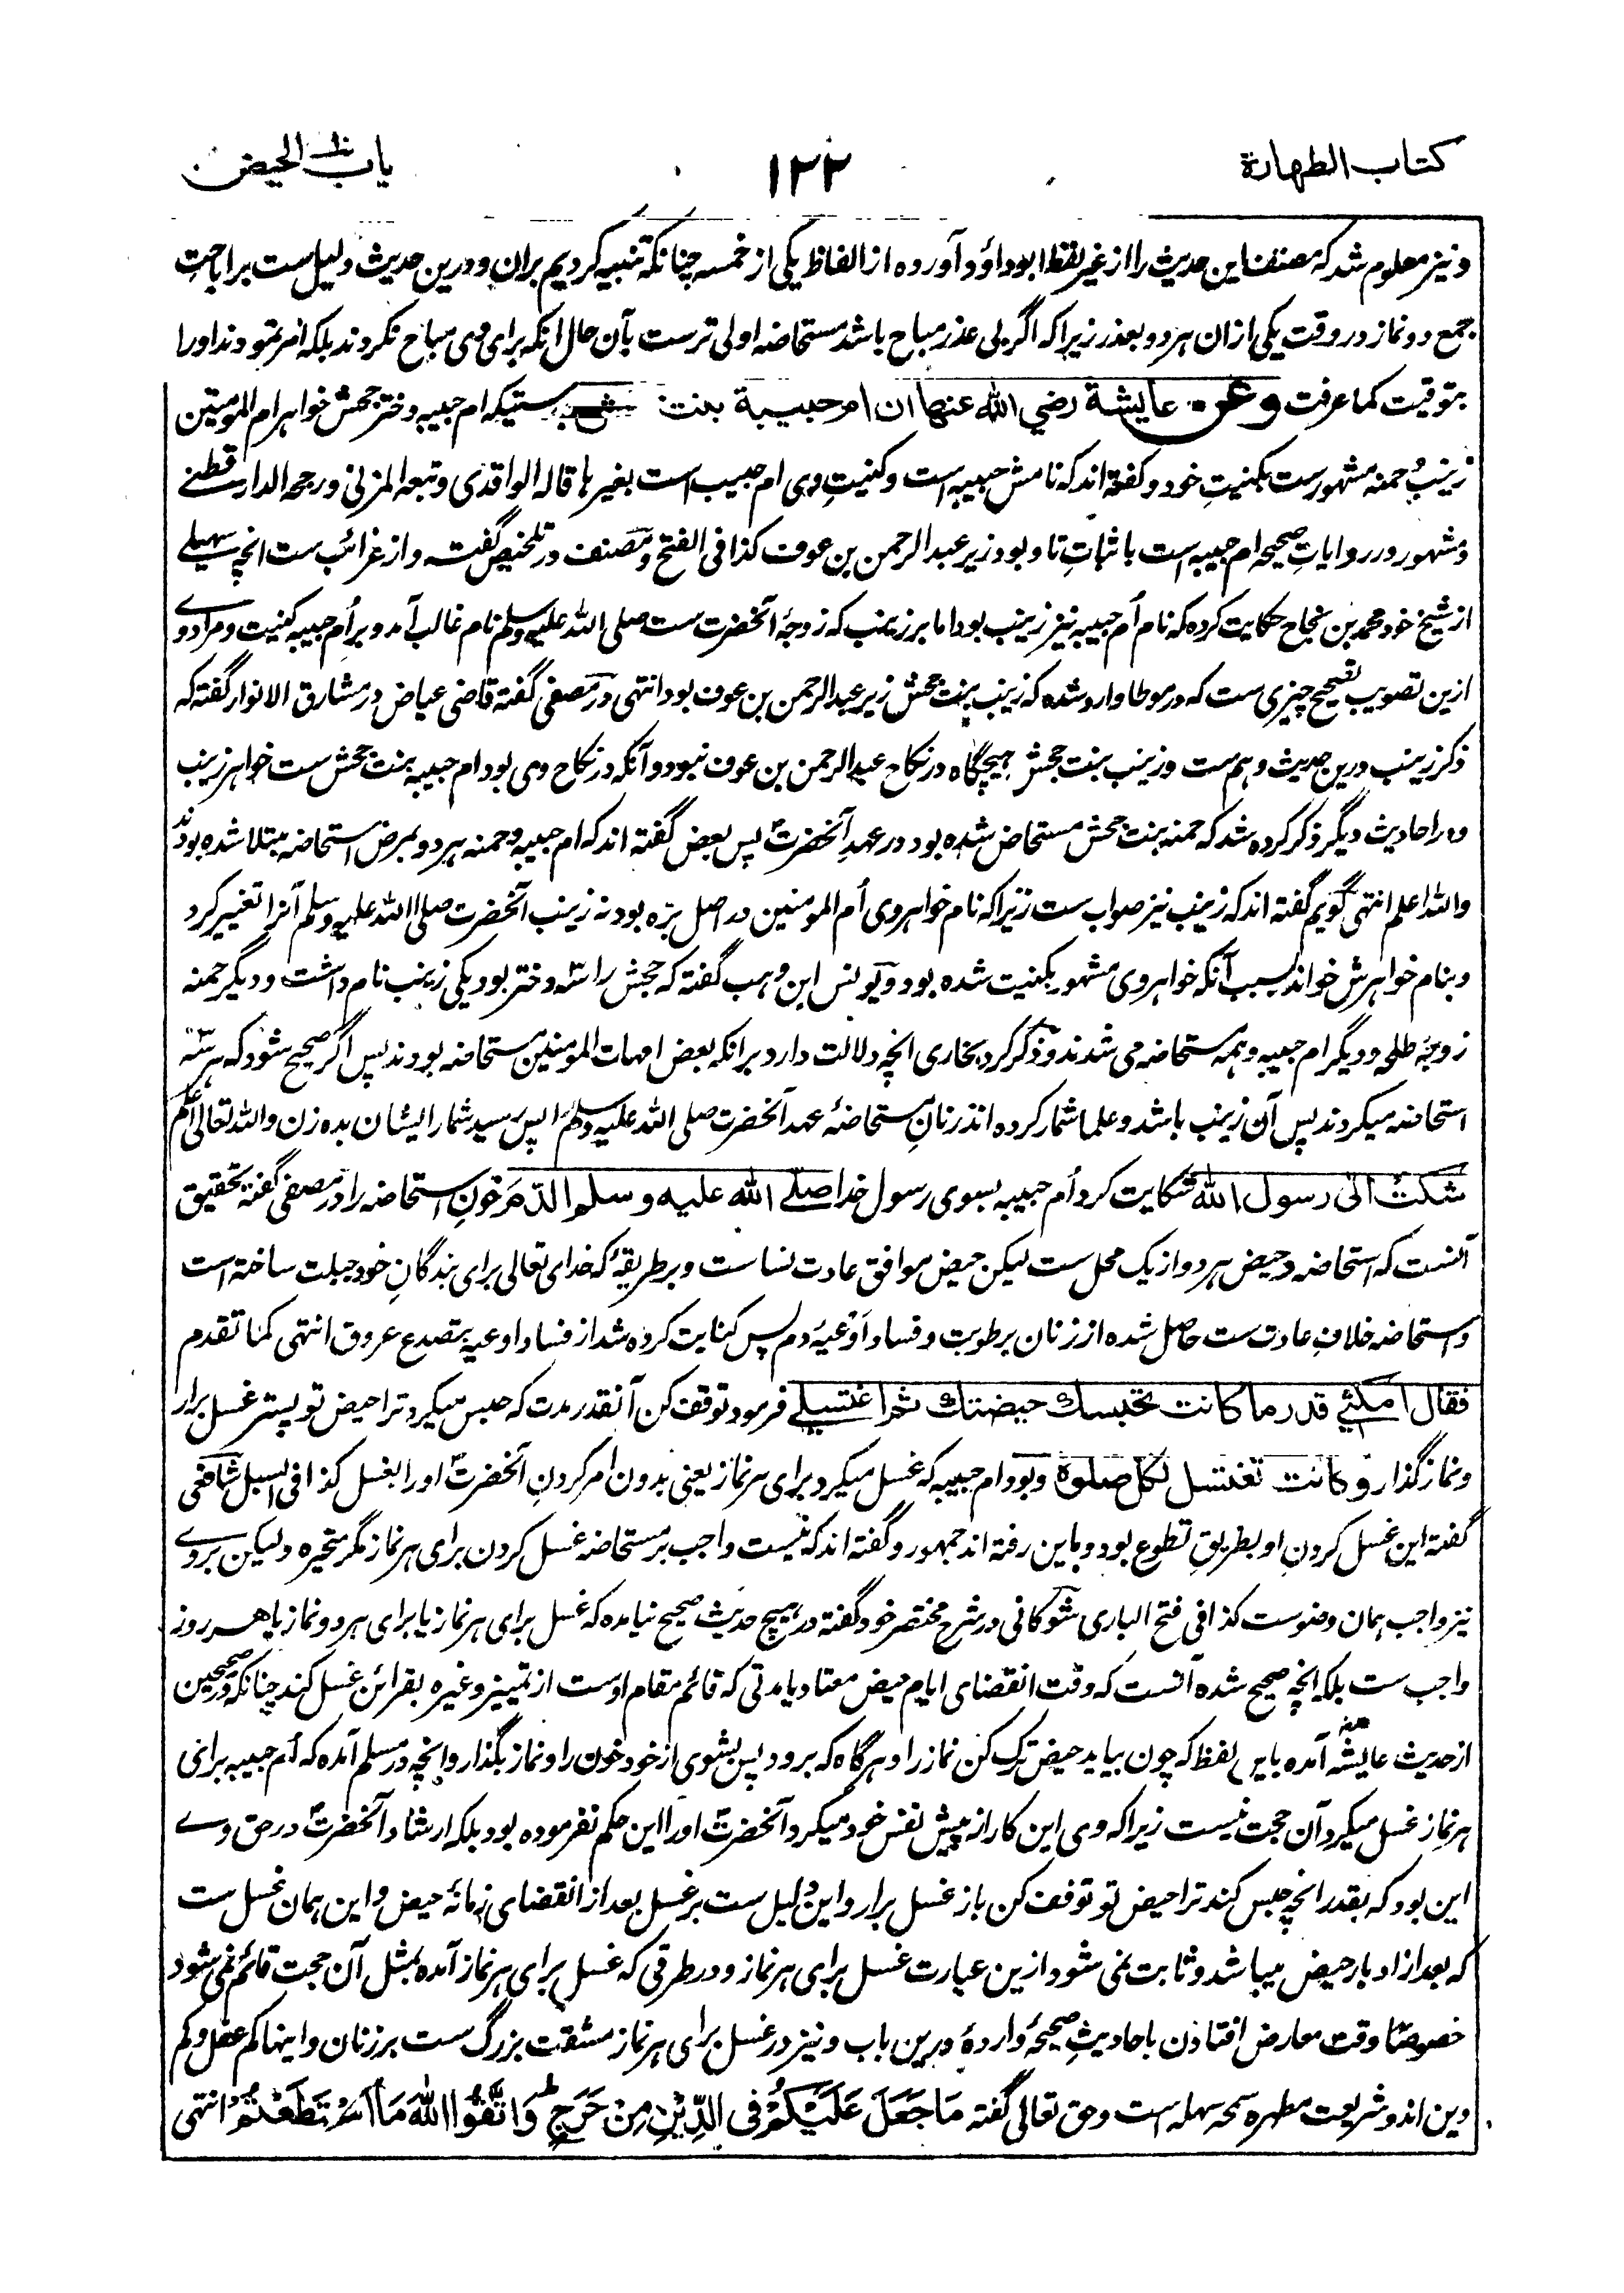 کتاب الطهارة
۱۲۲
باب الحیض
ونیز معلوم شد که مصنف این حدیث را از غیر لفظ ابوداؤد آورده از الفاظ یکی از خمسه چنانکه تنبیه کردیم بران و درین حدیث دلیل ست بر اباحت
جمع دو نماز در وقت یکی ازان هر دو بعذر زیرا که اگر بی عذر مباح باشد مستحاضه اولی ترست بآن حال آنکه برای وی مباح نکردند بلکه امر نمودند او را
بتوقیت کما عرفت وعن عایشة رضی الله عنها ان ام حبیبة بنت جحش بدرستیکه ام حبیبه دختر جحش خواهر ام المومنین
زینب و حمنه مشهورست بکنیت خود و گفته اند که نامش حبیبه است و کنیت وی ام حبیب است بغیرها قاله الواقدی و تبعه المزنی و رجحه الدارقطنے
و مشهور در روایات صحیحه ام حبیبه است باثبات تا و بود زیر عبدالرحمن بن عوف کذا فی الفتح و مصنف در تلخیص گفته و از غرائب ست انچه سهیلے
از شیخ خود محمد بن نجاح حکایت کرده که نام اُم حبیبه نیز زینب بود اما بر زینب که زوجۂ آنحضرت ست صلی الله علیه وسلم نام غالب آمد و بر اُم حبیبه کنیت و مراد وے
ازین تصویب تصحیح چیزی ست که در موطا وارد شده که زینب بنت جحش زیر عبدالرحمن بن عوف بود انتهی در مصفی گفته قاضی عیاض در مشارق الانوار گفته که
ذکر زینب درین حدیث وهم ست و زینب بنت جحش هیچگاه در نکاح عبدالرحمن بن عوف نبود و آنکه در نکاح وی بود ام حبیبه بنت جحش ست خواهر زینب
و در احادیث دیگر ذکر کرده شد که حمنه بنت جحش مستحاض شده بود در عهد آنحضرت ؐ پس بعض گفته اند که ام حبیبه و حمنه هر دو بمرض استحاضه مبتلا شده بودند
والله اعلم انتهی گویم گفته اند که زینب نیز صواب ست زیرا که نام خواهر وی اُم المومنین در اصل برّه بود نه زینب آنحضرت صلی الله علیه وسلم آنرا تغییر کرد
و بنام خواهرش خواند بسبب آنکه خواهر وی مشهور بکنیت شده بود و یونس ابن وهب گفته که جحش را سه دختر بود یکی زینب نام داشت و دیگر حمنه
زوجۂ طلحه و دیگر ام حبیبه و همه مستحاضه می شدند و ذکر کرد بخاری انچه دلالت دارد برانکه بعض امهات المومنین مستحاضه بودند پس اگر صحیح شود که هر سه
استحاضه میکردند پس آن زینب باشد و علما شمار کرده اند زنان مستحاضۂ عهد آنحضرت صلی الله علیه وسلم را پس رسید شمار ایشان بده زن والله تعالی اعلم
شکت الی رسول الله شکایت کرد اُم حبیبه بسوی رسول خدا صلے الله علیه وسلم الدم خون استحاضه را در مصفی گفته تحقیق
آنست که استحاضه و حیض هر دو از یک محل ست لیکن حیض موافق عادت نساست و بر طریقۂ که خدای تعالی برای بندگان خود جبلت ساخته است
و استحاضه خلاف عادت ست حاصل شده از زنان بر طوبت و فساد اوعیۂ دم پس کنایت کرده شد از فساد اوعیه بتصدع عروق انتهی کما تقدم
فقال امکثی قدر ما کانت تحبسك حیضتك ثم اغتسلے فرمود توقف کن آنقدر مدت که حبس میکرد ترا حیض تو پستر غسل برار
و نماز گذار وکانت تغتسل لکل صلوة و بود ام حبیبه که غسل میکرد برای هر نماز یعنی بدون امر کردن آنحضرت ؐ او را بغسل کذا فی السبل شافعی
گفته این غسل کردن او بطریق تطوع بود و باین رفته اند جمهور و گفته اند که نیست واجب بر مستحاضه غسل کردن برای هر نماز مگر متحیره ولیکن بر وے
نیز واجب همان وضوست کذا فی فتح الباری شوکانی در شرح مختصر خود گفته در هیچ حدیث صحیح نیامده که غسل برای هر نماز یا برای هر دو نماز یا هر روز
واجب ست بلکه انچه صحیح شده آنست که وقت انقضای ایام حیض معتاد یا مدتی که قائم مقام اوست از تمییز وغیره بقرائن غسل کند چنانکه در صحیحین
از حدیث عایشه رضه آمده باین لفظ که چون بیاید حیض ترک کن نماز را و هرگاه که برود پس بشوی از خود خون را و نماز بگذار وانچه در مسلم آمده که اُم حبیبه برای
هر نماز غسل میکرد آن حجت نیست زیرا که وی این کار از پیش نفس خود میکرد آنحضرت ؐ او را این حکم نفرموده بود بلکه ارشاد آنحضرت ؐ در حق وے
این بود که بقدر انچه حبس کند ترا حیض تو توقف کن باز غسل برار و این دلیل ست بر غسل بعد از انقضای زمانۂ حیض و این همان غسل ست
که بعد از ادبار حیض میباشد و ثابت نمی شود ازین عبارت غسل برای هر نماز و در طرقی که غسل برای هر نماز آمده بمثل آن حجت قائم نمی شود
خصوصًا وقت معارض افتادن باحادیث صحیحۂ واردۂ درین باب و نیز در غسل برای هر نماز مشقت بزرگ ست بر زنان و اینها کم عقل و کم
دین اند و شریعت مطهره سمحه سهله است و حق تعالی گفته مَا جَعَلَ عَلَیْکُمْ فِی الدِّیْنِ مِنْ حَرَجٍ وَاتَّقُوا اللهَ مَا اسْتَطَعْتُمْ انتهی